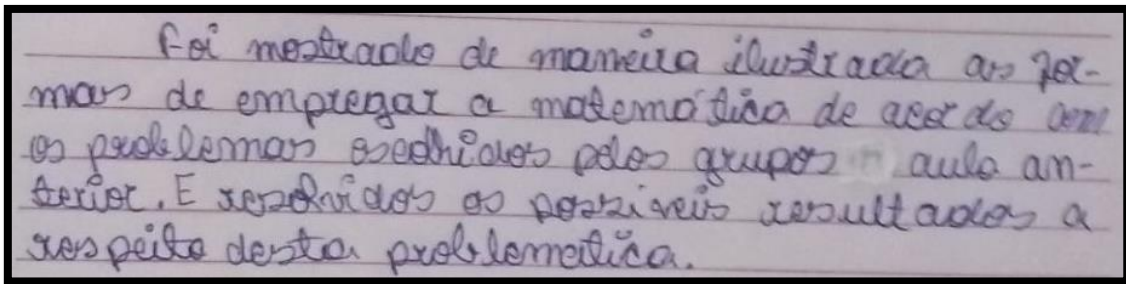 Foi mostrado de maneira ilustrada as for-
mas de empregar a matemática de acordo com
os problemas escolhidos pelos grupos n aula an-
terior. E resolvidos os possiveis resultados a
respeito desta problemática.